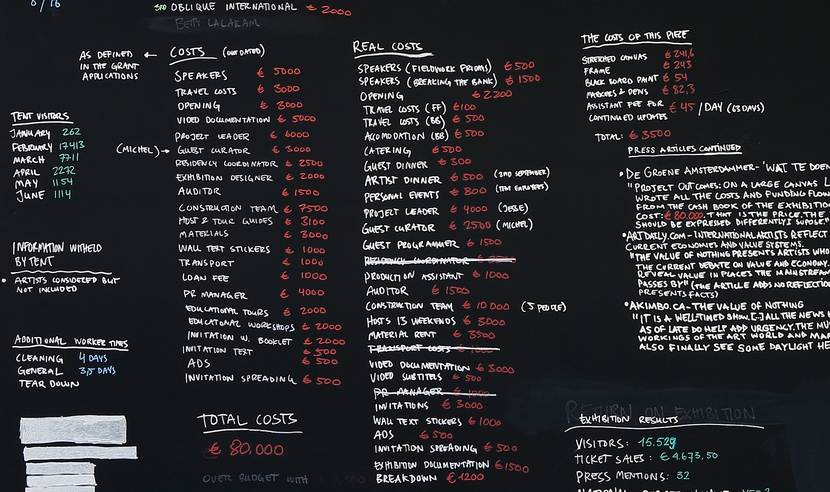 OBLIQUE INTERNATIONAL € 2000
BETTI LALARAM
AS DEFINED
IN THE GRANT
APPLICATIONS
← COSTS (OUTDATED)
SPEAKERS € 5000
TRAVEL COSTS € 3000
OPENING € 3000
VIDEO DOCUMENTATION € 5000
PROJECT LEADER € 6000
(MICHEL) → GUEST CURATOR € 3000
RESIDENCY COORDINATOR € 2500
EXHIBITION DESIGNER € 2000
AUDITOR € 1500
CONSTRUCTION TEAM € 7500
HOST & TOUR GUIDES € 3100
MATERIALS € 3000
WALL TEXT STICKERS € 1000
TRANSPORT € 1000
LOAN FEE € 1000
PR MANAGER € 4000
EDUCATIONAL TOURS € 2000
EDUCATIONAL WORKSHOPS € 2000
INVITATION W. BOOKLET € 2000
INVITATION TEXT € 500
ADS € 500
INVITATION SPREADING € 500
TOTAL COSTS
€ 80.000
OVER BUDGET WITH
TENT VISITORS
JANUARY 262
FEBRUARY 17413
MARCH 7711
APRIL 2272
MAY 1154
JUNE 1114
INFORMATION WITHELD
BY TENT
• ARTISTS CONSIDERED BUT
NOT INCLUDED
ADDITIONAL WORKER TIMES
CLEANING 4 DAYS
GENERAL 3,5 DAYS
TEAR DOWN
REAL COSTS
SPEAKERS (FIELDWORK FRIDAYS) € 500
SPEAKERS (BREAKING THE BANK) € 1500
OPENING € 2200
TRAVEL COSTS (FF) €100
TRAVEL COSTS (BB) € 500
ACCOMODATION (BB) € 500
CATERING € 500
GUEST DINNER € 300
ARTIST DINNER € 500 (2ND SEPTEMBER)
PERSONAL EVENTS € 800 (TENT EMPLOYEES)
PROJECT LEADER € 4000 (JESSE)
GUEST CURATOR € 2500 (MICHEL)
GUEST PROGRAMMER € 1500
RESIDENCY COORDINATOR
PRODUCTION ASSISTANT € 1000
AUDITOR € 1500
CONSTRUCTION TEAM € 10 000 (5 PEOPLE)
HOSTS 13 WEEKENDS € 3000
MATERIAL RENT € 3500
TRANSPORT COSTS € 1000
VIDEO DOCUMENTATION € 3000
VIDEO SUBTITELS € 500
PR MANAGER € 1000
INVITATIONS € 3000
WALL TEXT STICKERS € 1000
ADS € 500
INVITATION SPREADING € 500
EXHIBITION DOCUMENTATION €1500
BREAKDOWN € 1200
THE COSTS OF THIS PIECE
STRETCHED CANVAS € 241,6
FRAME € 243
BLACK BOARD PAINT € 54
MARKERS & PENS € 82,3
ASSISTANT FEE FOR € 45 /DAY (63 DAYS)
CONTINUED UPDATES
TOTAL: € 3500
PRESS ARTICLES CONTINUED
• DE GROENE AMSTERDAMMER - 'WAT TE DOEN
"PROJECT OUTCOMES: ON A LARGE CANVAS
WROTE ALL THE COSTS AND FUNDING FLOW
FROM THE CASH BOOK OF THE EXHIBITION
COST: € 80.000. THAT IS THE PRICE, THE
SHOULD BE EXPRESSED DIFFERENTLY I SUPPOSE."
• ARTDAILY.COM - INTERNATIONAL ARTISTS REFLECT
CURRENT ECONOMIES AND VALUE SYSTEMS.
"THE VALUE OF NOTHING PRESENTS ARTISTS WHO
THE CURRENT DEBATE ON VALUE AND ECONOMY.
REVEAL VALUE IN PLACES THE MAINSTREAM
PASSES BY" (THE ARTICLE ADDS NO REFLECTION
PRESENTS FACTS)
• AKIMBO.CA - THE VALUE OF NOTHING
"IT IS A WELL-TIMED SHOW. [-] ALL THE NEWS
AS OF LATE DO HELP ADD URGENCY. THE
WORKINGS OF THE ART WORLD AND
ALSO FINALLY SEE SOME DAYLIGHT
RETURN ON EXHIBITION
EXHIBITION RESULTS
VISITORS: 15.529
TICKET SALES: € 4.673,50
PRESS MENTIONS: 32